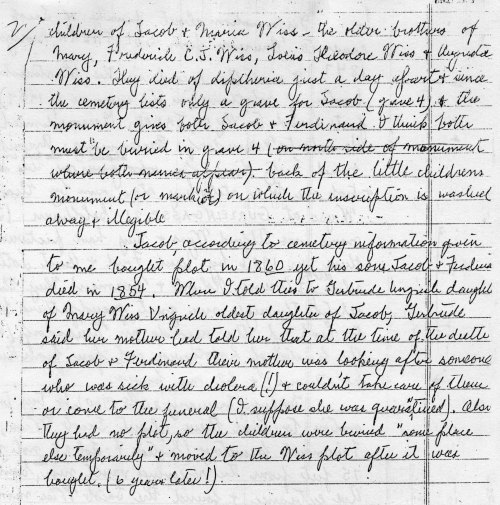 2/ children of Jacob & Maria Wiss - the older brothers of
Mary, Frederick C.J. Wiss, Louis Theodore Wiss & Augusta
Wiss. They died of diptheria just a day apart & since
the cemetery lists only a grave for Jacob (grave 4) & the
monument gives both Jacob & Ferdinand I think both
must be buried in grave 4 (on north side of monument
where both names appear). back of the little childrens
monument (or marker) on which the inscription is washed
away & illegible.
Jacob, according to cemetery information given
to me bought plot in 1860 yet his sons Jacob & Ferdinand
died in 1854. When I told this to Gertrude Ungrich daught
of Mary Wiss Ungrich oldest daughter of Jacob, Gertrude
said her mother had told her that at the time of the deaths
of Jacob & Ferdinand their mother was looking after someone
who was sick with cholera (!) & couldn't take care of them
or come to the funeral (I suppose she was quarantined). Also
they had no plot, so the children were buried "some place
else temporarily" & moved to the Wiss plot after it was
bought. (6 years later!)